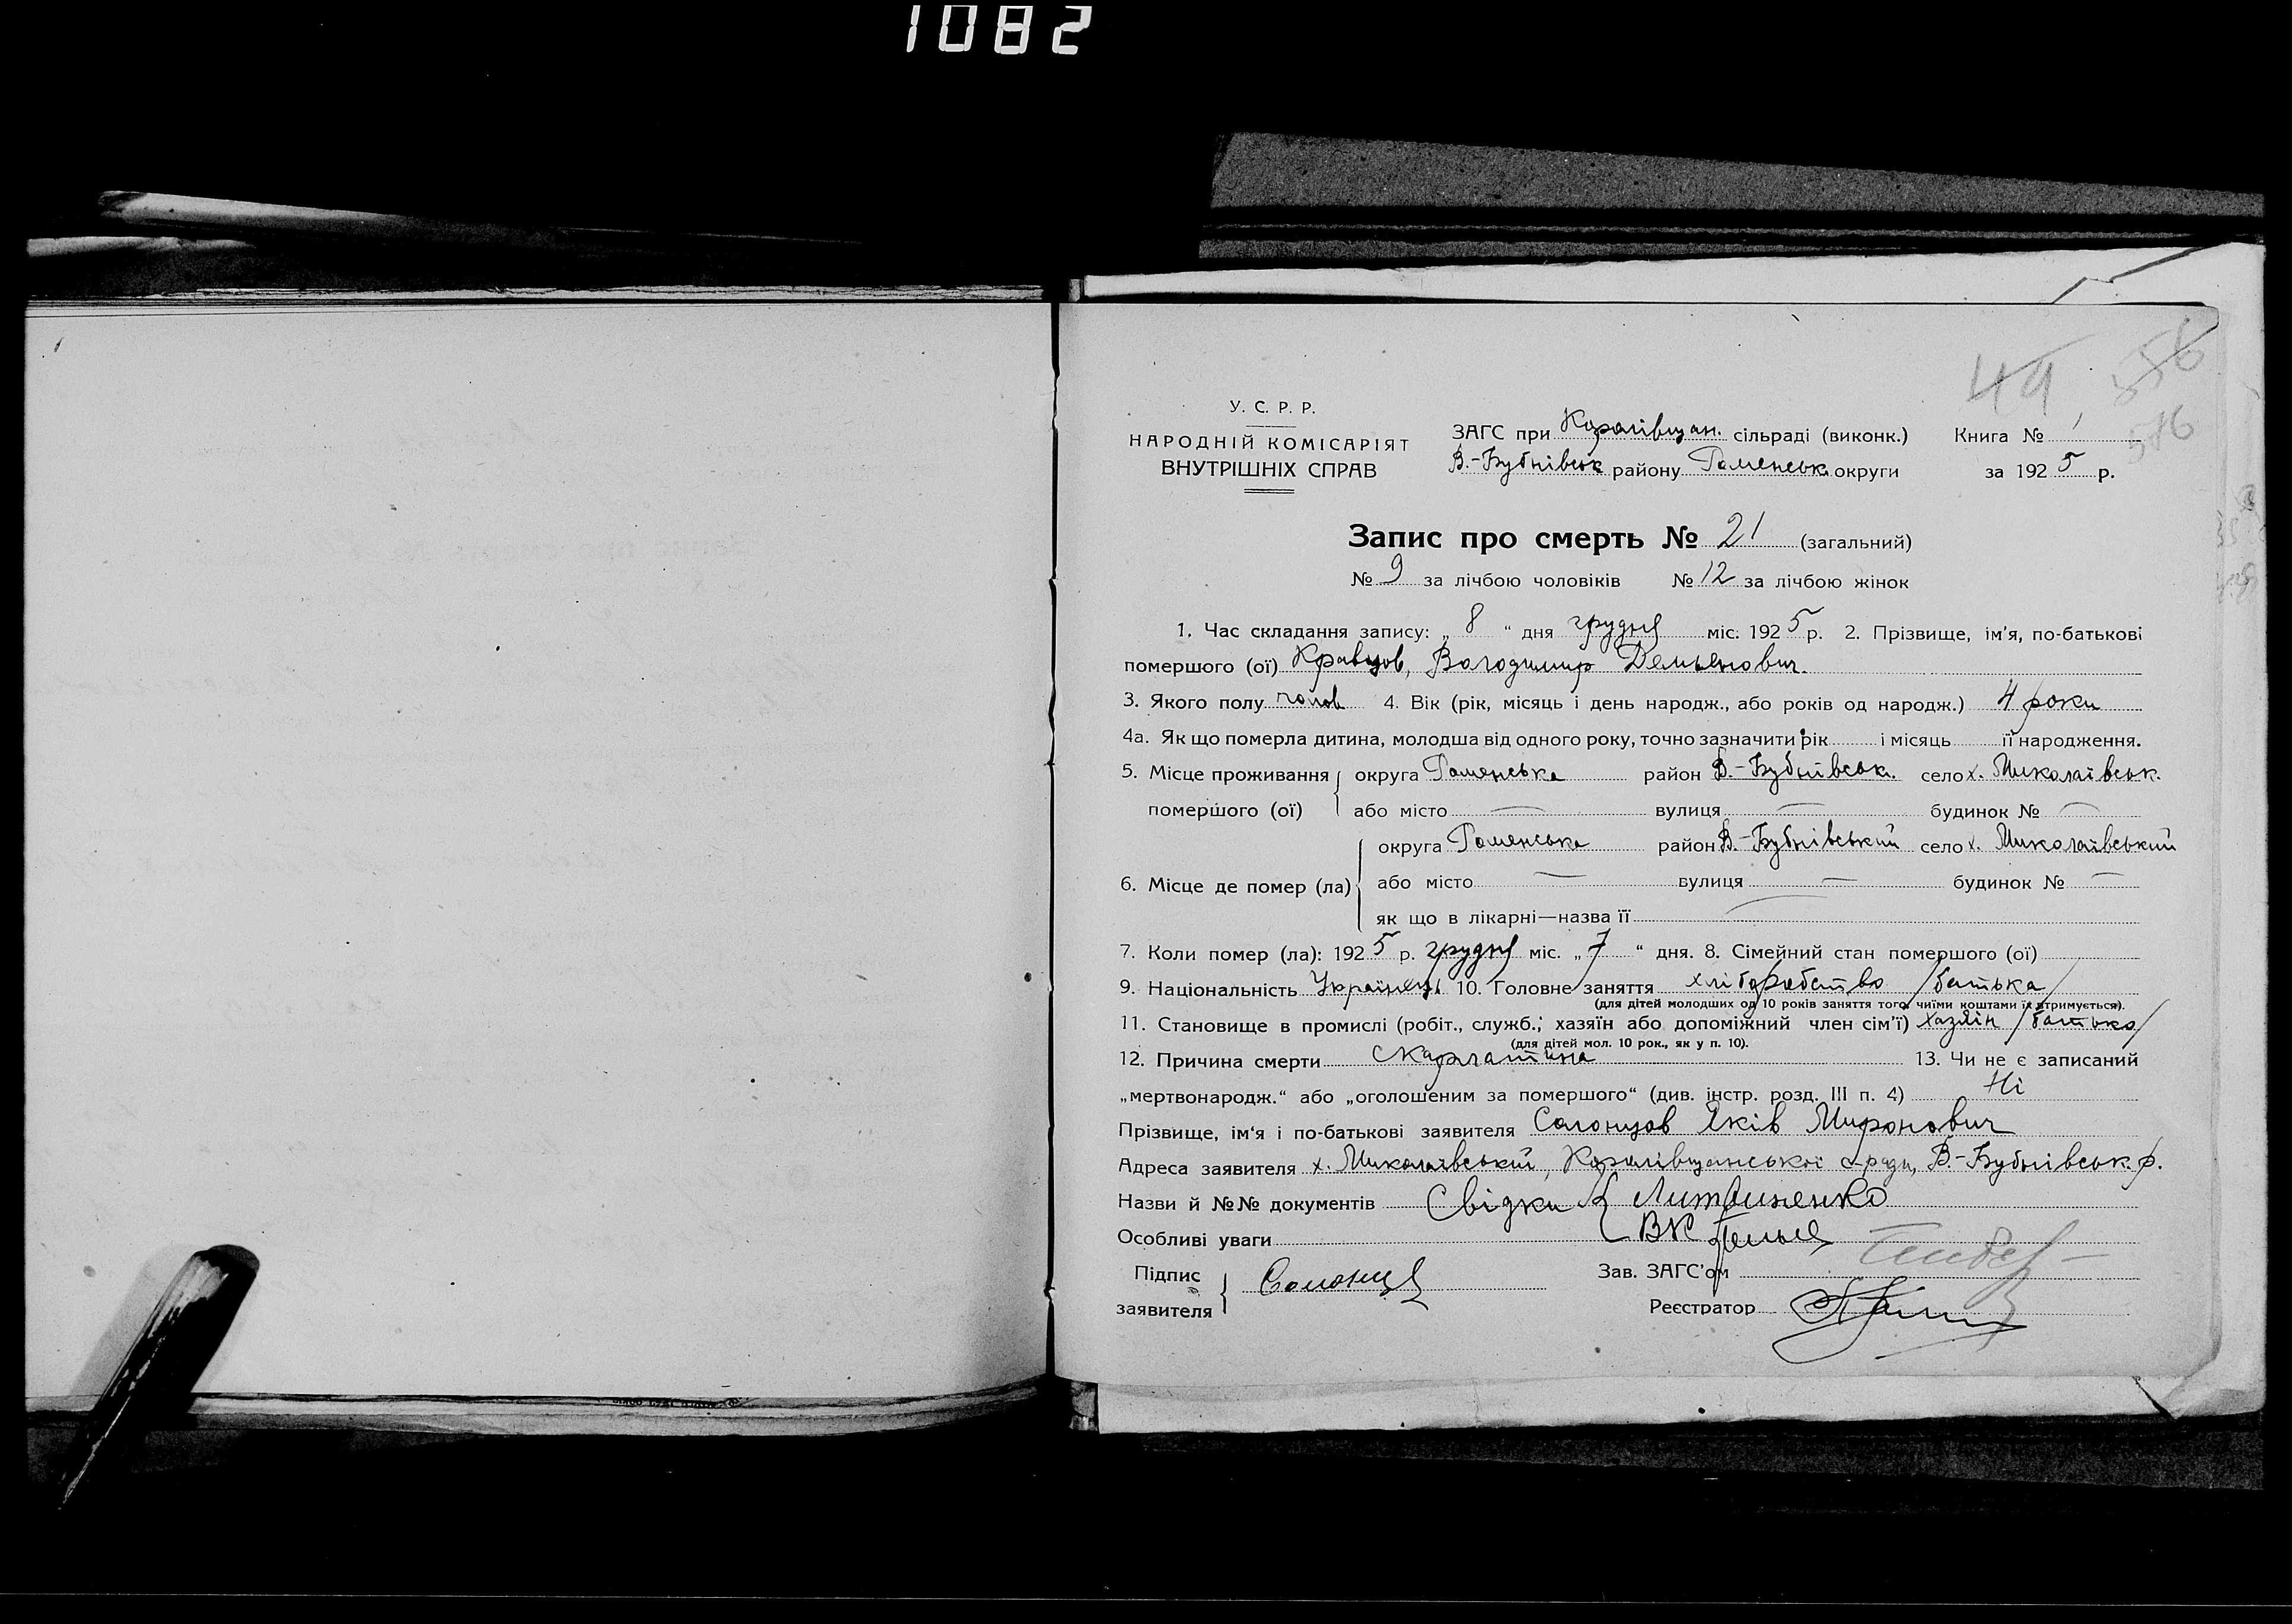 1082
49 556
576
У. С. Р. Р.
НАРОДНІЙ КОМІСАРІЯТ
ВНУТРІШНІХ СПРАВ
ЗАГС при Коралівщан. сільраді (виконк.) Книга № 1
В.-Бубнівськ району Роменськ округи за 1925 р.
Запис про смерть № 21 (загальний)
№ 9 за лічбою чоловіків № 12 за лічбою жінок
1. Час складання запису: „ 8 “ дня грудня міс. 1925 р. 2. Прізвище, ім'я, по-батькові
помершого (ої) Кравцов, Володимир Демьянович
3. Якого полу чолов 4. Вік (рік, місяць і день народж., або років од народж.) 4 роки
4а. Як що померла дитина, молодша від одного року, точно зазначити рік і місяць її народження.
5. Місце проживання округа Роменська район В.-Бубнівськ. село х. Миколаївськ.
помершого (ої) або місто — вулиця — будинок № —
округа Роменська район В.-Бубнівський село х. Миколаївський
6. Місце де помер (ла) або місто — вулиця — будинок № —
як що в лікарні—назва її —
7. Коли помер (ла): 1925 р. грудня міс. „ 7 “ дня. 8. Сімейний стан помершого (ої)
9. Національність Українець 10. Головне заняття хліборобство /батька/
(для дітей молодших од 10 років заняття того, чиїми коштами їх утримується).
11. Становище в промислі (робіт., служб.; хазяїн або допоміжний член сім'ї) хазяїн /батько/
(для дітей мол. 10 рок., як у п. 10).
12. Причина смерти скарлатина 13. Чи не є записаний
„мертвонародж.“ або „оголошеним за помершого“ (див. інстр. розд. III п. 4) Ні
Прізвище, ім'я і по-батькові заявителя Солонцов Яків Миронович
Адреса заявителя х. Миколаївський, Коралівщанської с-ради, В.-Бубнівськ. р.
Назви й №№ документів Свідки { Литвиненко
Особливі уваги ВК
Підпис
заявителя Солонцов
Зав. ЗАГС'ом
Реєстратор